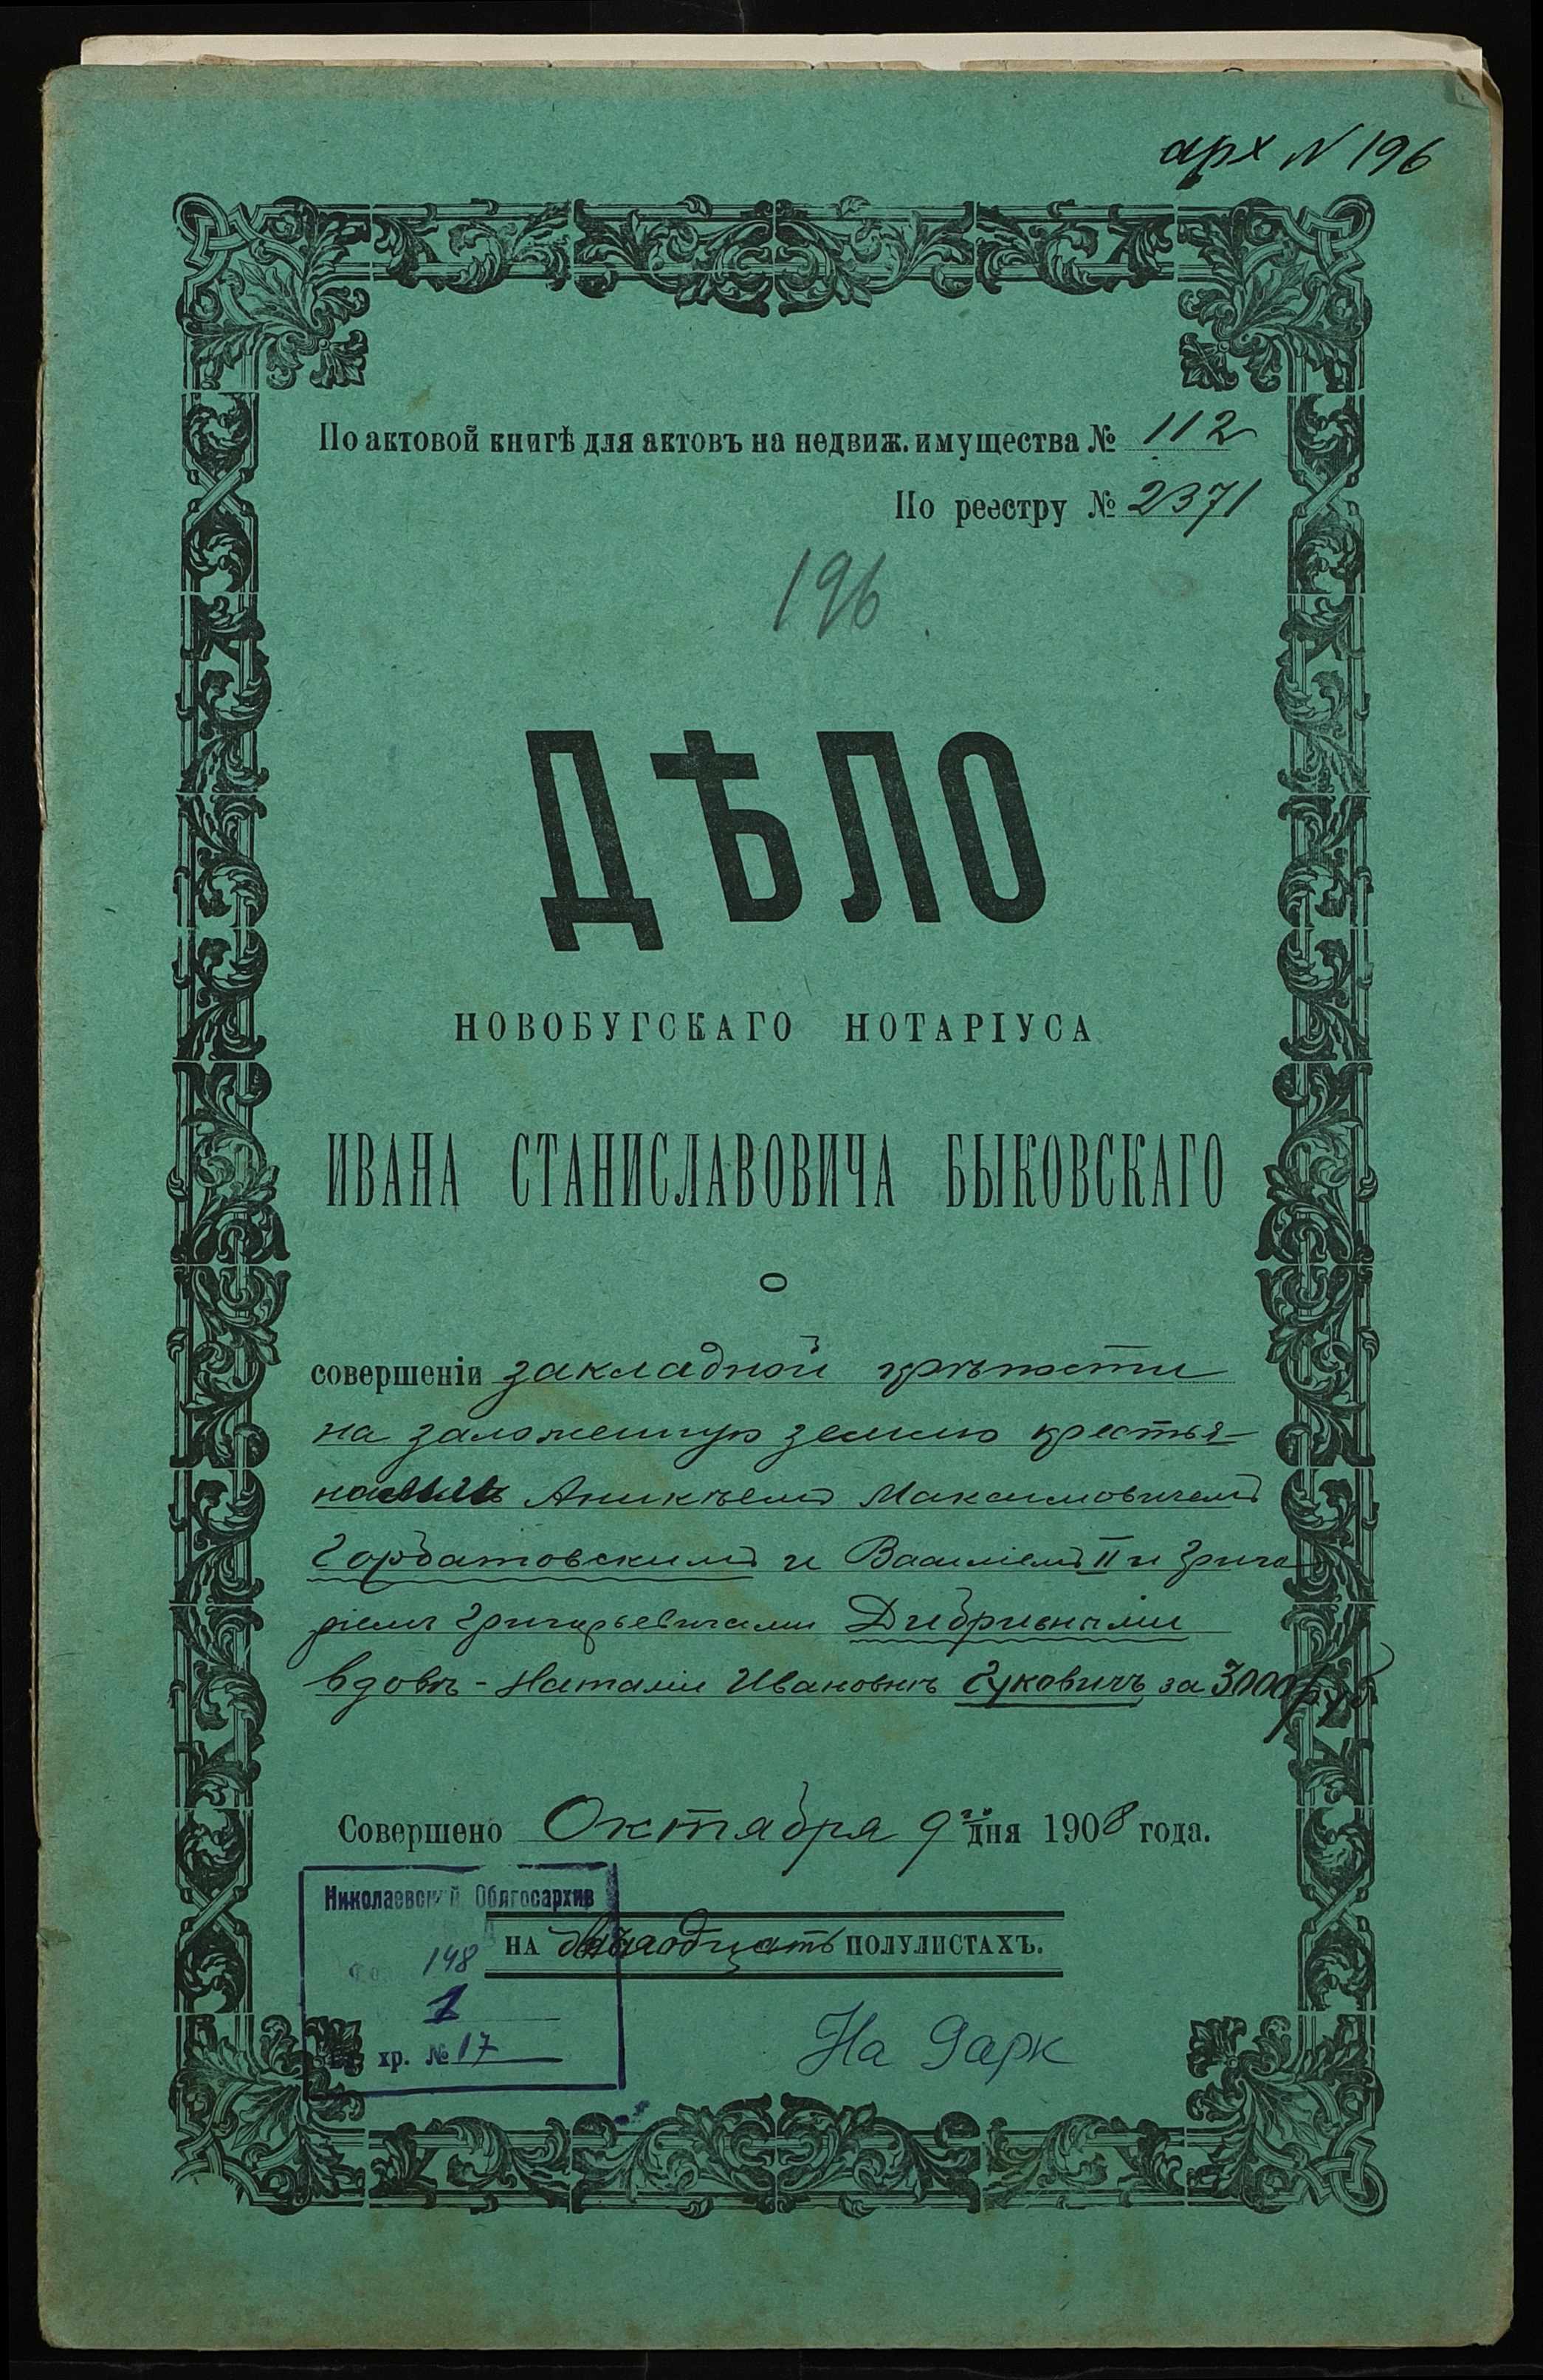 арх N 196
По актовой книгѣ для актовъ на недвиж. имущества № 112
По реестру № 2371
196
ДѢЛО
НОВОБУГСКАГО НОТАРІУСА
ИВАНА СТАНИСЛАВОВИЧА БЫКОВСКАГО
О
совершеніи закладной крѣпости
на заложенную землю крестья-
нами Аникѣемъ Максимовичемъ
Горбатовскимъ и Василіемъ II и Григо
ріемъ Григорьевичами Дибривными
вдовѣ - Наталіи Ивановнѣ Гуковичъ за 3000 руб
Совершено Октября 9го дня 1908 года.
Николаевский Облгосархив
НА двѣнадцать ПОЛУЛИСТАХЪ.
148
1
хр. № 17
На